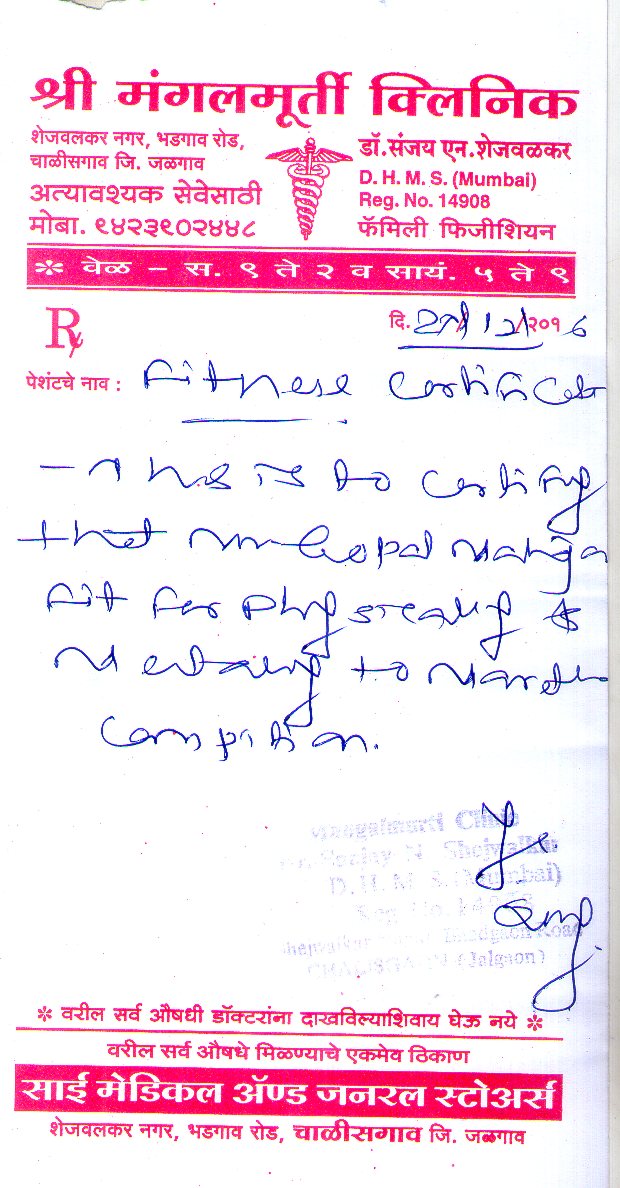 श्री मंगलमूर्ती क्लिनिक
शेजवलकर नगर, भडगाव रोड,
चाळीसगाव जि. जळगाव
अत्यावश्यक सेवेसाठी
मोबा. ९४२३९०२४४८
डॉ.संजय एन.शेजवळकर
D. H. M. S. (Mumbai)
Reg. No. 14908
फॅमिली फिजीशियन
✻ वेळ – स. ९ ते २ व सायं. ५ ते ९
Rx
दि. /12/२०१6
पेशंटचे नाव : Fitness certificate
- This is to certify
that Mr Gopal
fit for physically &
Mentally to
Mangalmurti Clinic
Dr. Sanjay N. Shejvalkar
D. H. M. S. (Mumbai)
Reg. No. 14908
Bhadgaon Road
CHALISGAON (Jalgaon)
✻ वरील सर्व औषधी डॉक्टरांना दाखविल्याशिवाय घेऊ नये ✻
वरील सर्व औषधे मिळण्याचे एकमेव ठिकाण
साई मेडिकल ॲण्ड जनरल स्टोअर्स
शेजवलकर नगर, भडगाव रोड, चाळीसगाव जि. जळगाव